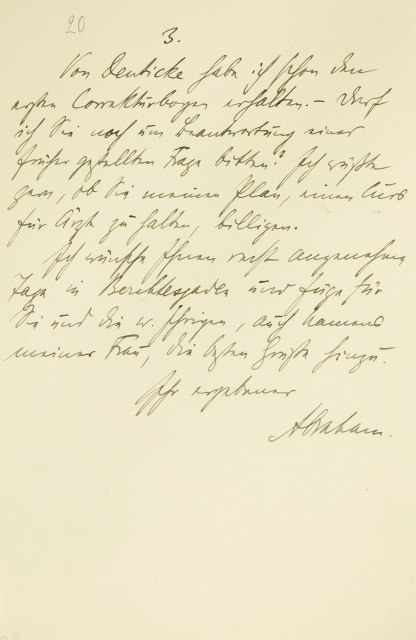 20
3.
Von Deuticke habe ich schon den
ersten Correkturbogen erhalten. – Darf
ich Sie noch um Beantwortung einer
früher gestellten Frage bitten? Ich wüßte
gern, ob Sie meinen Plan, einen Curs
für Ärzte zu halten, billigen.
Ich wünsche Ihnen recht angenehme
Tage in Berchtesgaden und füge für
Sie und die w. Ihrigen, auch namens
meiner Frau, die besten Grüße hinzu.
Ihr ergebener
Abraham.